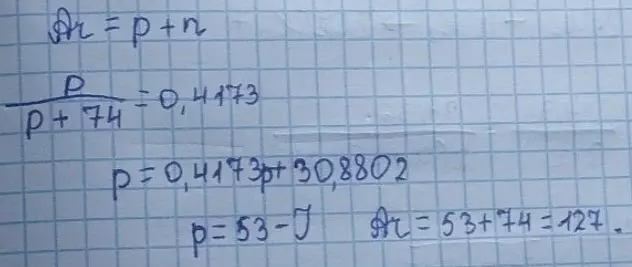 Ar = p + n
p / (p + 74) = 0,4173
p = 0,4173p + 30,8802
p = 53 - J Ar = 53 + 74 = 127.